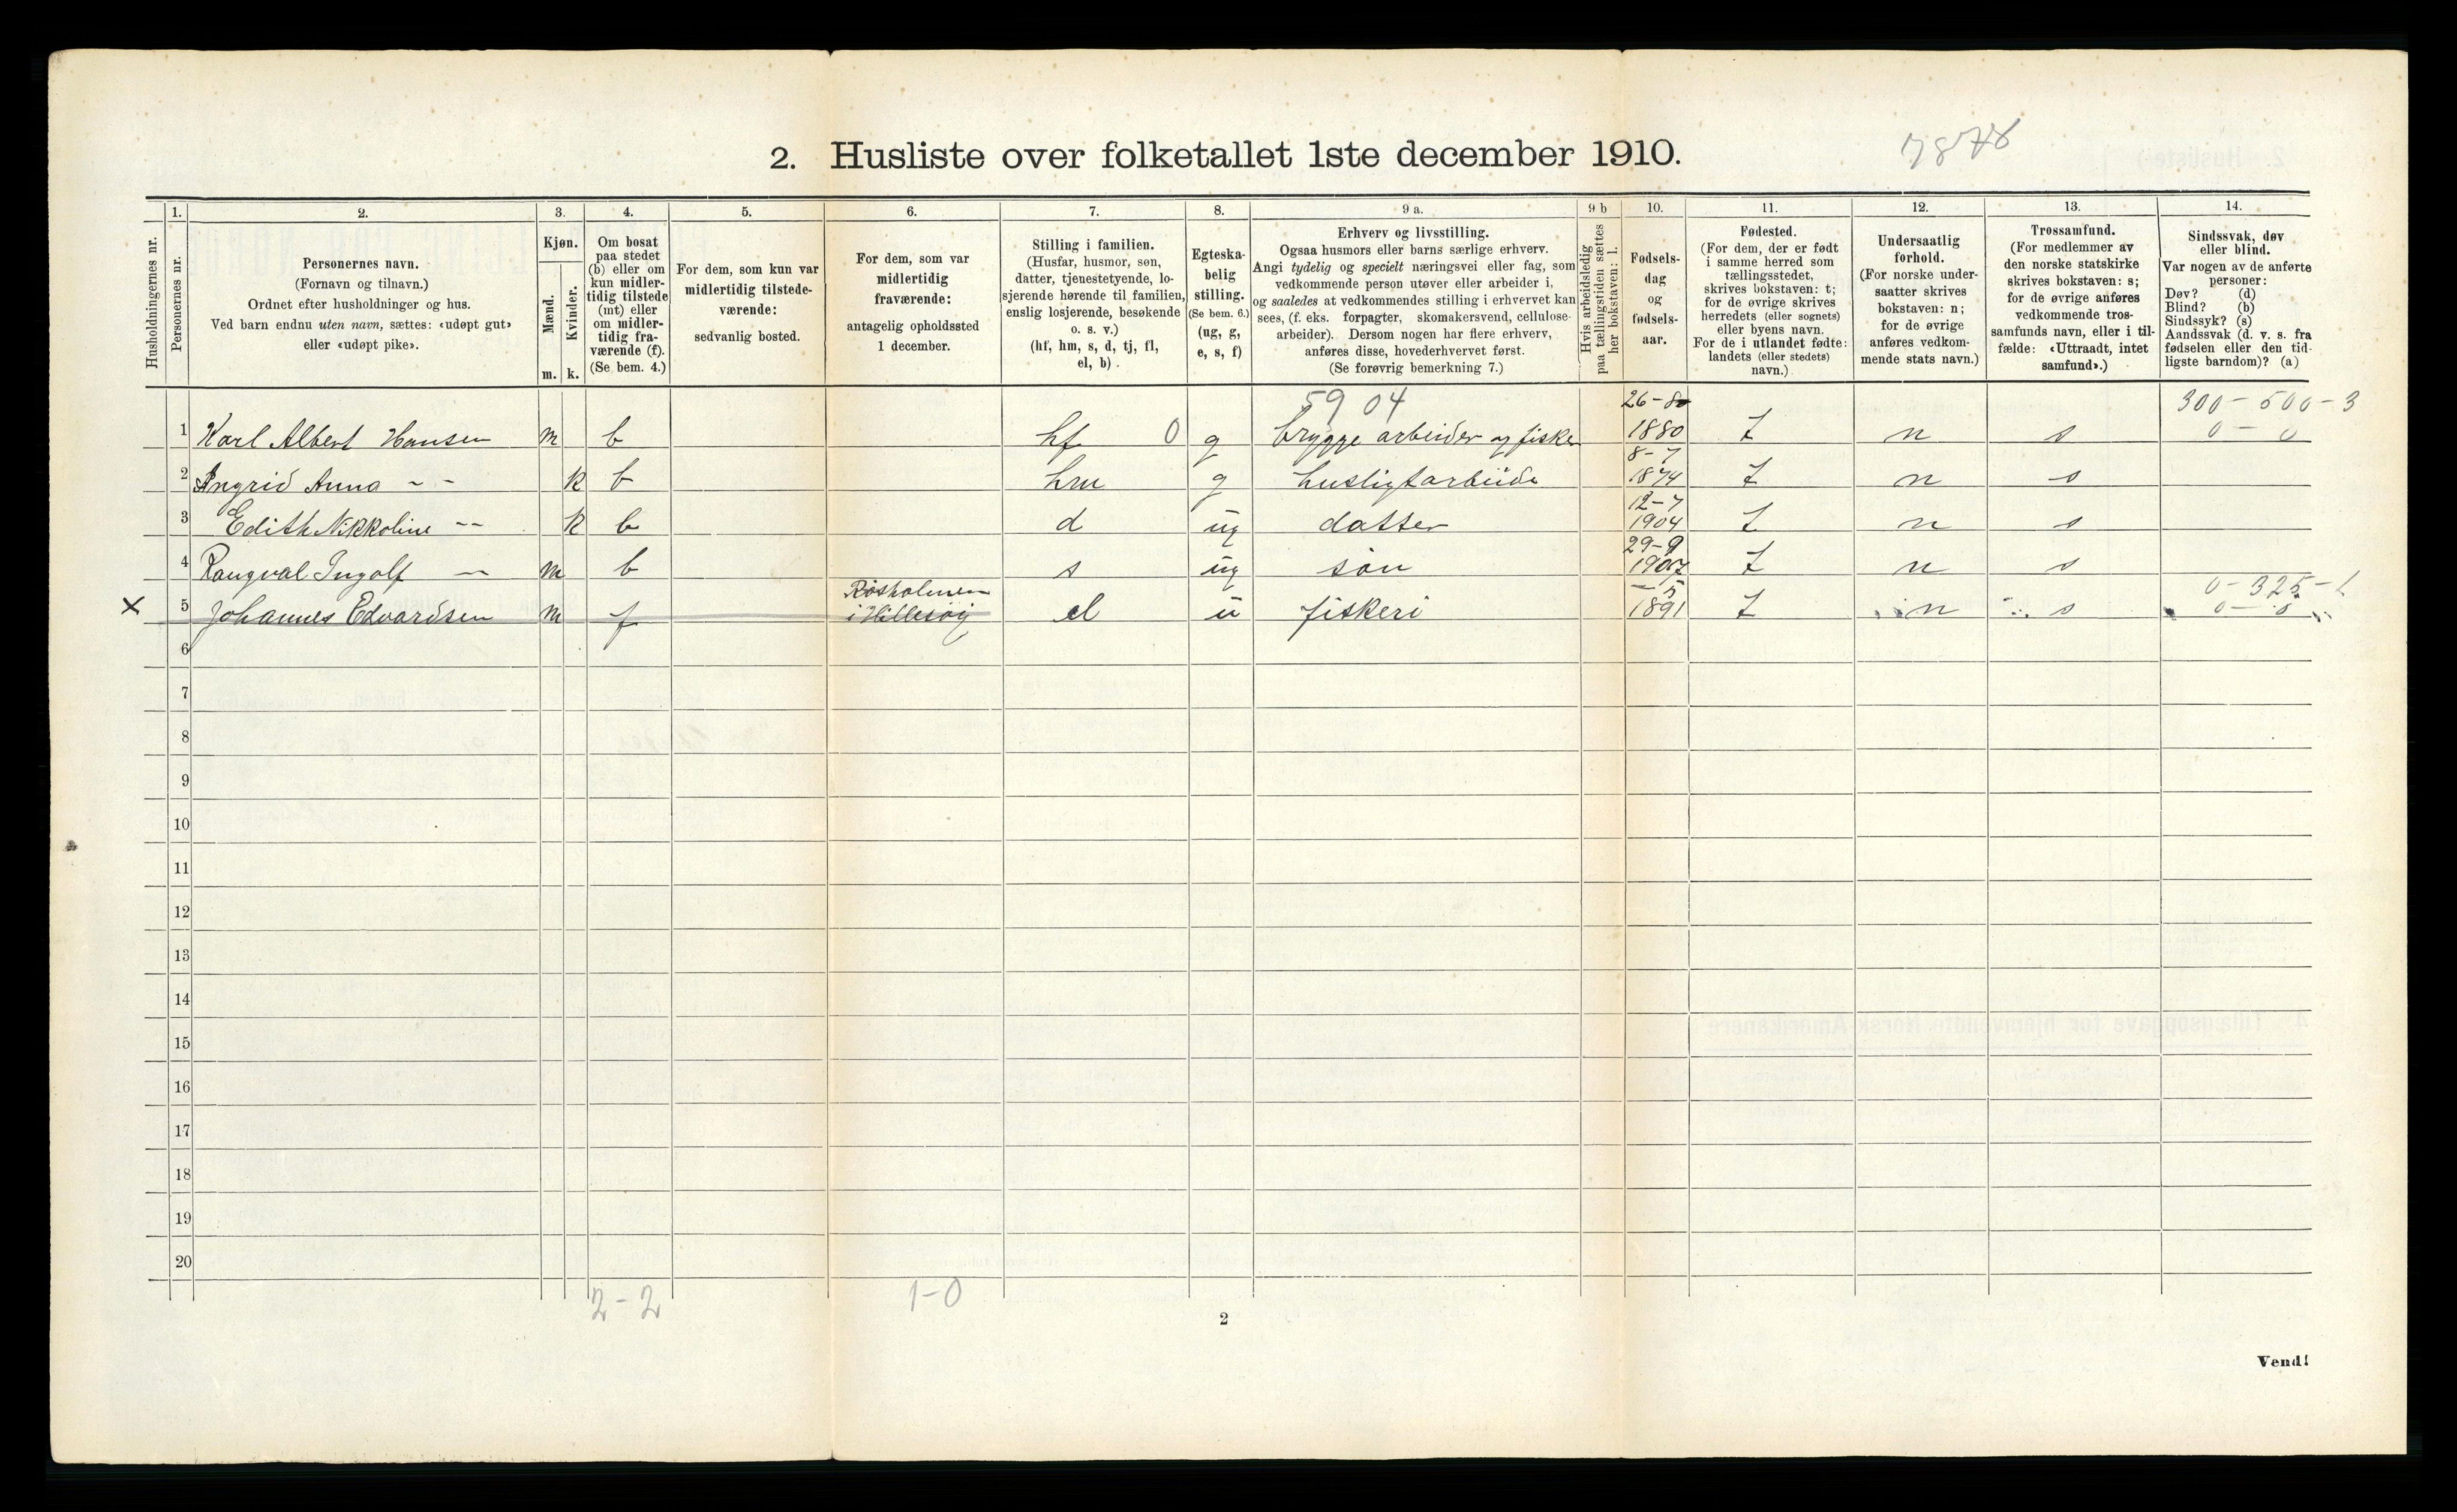 2. Husliste over folketallet 1ste december 1910.
7878
1. 2. 3. 4. 5. 6. 7. 8. 9 a. 9 b 10. 11. 12. 13. 14.
Husholdningernes nr.
Personernes nr.
Personernes navn.
(Fornavn og tilnavn.)
Ordnet efter husholdninger og hus.
Ved barn endnu uten navn, sættes: «udøpt gut»
eller «udøpt pike».
Kjøn.
Mænd.
Kvinder.
m. k.
Om bosat
paa stedet
(b) eller om
kun midler-
tidig tilstede
(mt) eller
om midler-
tidig fra-
værende (f).
(Se bem. 4.)
For dem, som kun var
midlertidig tilstede-
værende:
sedvanlig bosted.
For dem, som var
midlertidig
fraværende:
antagelig opholdssted
1 december.
Stilling i familien.
(Husfar, husmor, søn,
datter, tjenestetyende, lo-
sjerende hørende til familien,
enslig losjerende, besøkende
o. s. v.)
(hf, hm, s, d, tj, fl,
el, b).
Egteska-
belig
stilling.
(Se bem. 6.)
(ug, g,
e, s, f)
Erhverv og livsstilling.
Ogsaa husmors eller barns særlige erhverv.
Angi tydelig og specielt næringsvei eller fag, som
vedkommende person utøver eller arbeider i,
og saaledes at vedkommendes stilling i erhvervet kan
sees, (f. eks. forpagter, skomakersvend, cellulose-
arbeider). Dersom nogen har flere erhverv,
anføres disse, hovederhvervet først.
(Se forøvrig bemerkning 7.)
Hvis arbeidsledig
paa tællingstiden sættes
her bokstaven: l.
Fødsels-
dag
og
fødsels-
aar.
Fødested.
(For dem, der er født
i samme herred som
tællingsstedet,
skrives bokstaven: t;
for de øvrige skrives
herredets (eller sognets)
eller byens navn.
For de i utlandet fødte:
landets (eller stedets)
navn.)
Undersaatlig
forhold.
(For norske under-
saatter skrives
bokstaven: n;
for de øvrige
anføres vedkom-
mende stats navn.)
Trossamfund.
(For medlemmer av
den norske statskirke
skrives bokstaven: s;
for de øvrige anføres
vedkommende tros-
samfunds navn, eller i til-
fælde: «Uttraadt, intet
samfund».)
Sindssvak, døv
eller blind.
Var nogen av de anførte
personer:
Døv? (d)
Blind? (b)
Sindssyk? (s)
Aandssvak (d. v. s. fra
fødselen eller den tid-
ligste barndom)? (a)
59 04 26-80 300-500-3
1 Karl Albert Hansen m b hf 0 g brygge arbeider og fisker 1880 t n s 0-0
8-7
2 Ingrid Anna - - k b hm g husligtarbeide 1874 t n s
12-7
3 Edith Nikkoline -- k b d ug datter 1904 t n s
29-9
4 Rangval Ingolf - m b s ug søn 1907 t n s
Røsholmen 0-325-1
x 5 Johannes Edvardsen m f i Hillesøy el u fiskeri 1891 t n s 0-0
6
7
8
9
10
11
12
13
14
15
16
17
18
19
20
2-2 1-0
2
Vend!